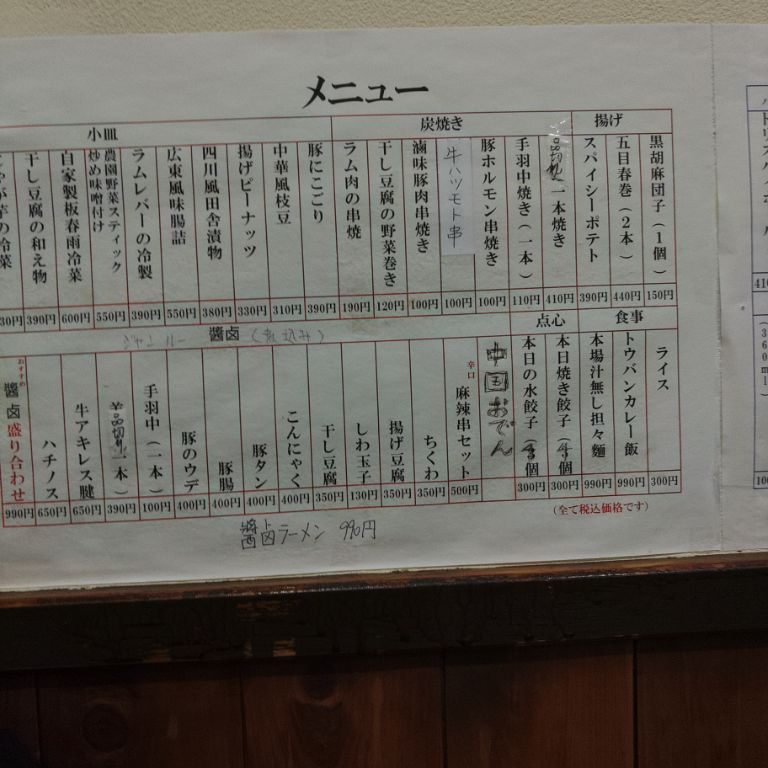 メニュー
揚げ
黒胡麻団子（1個） 150円
五目春巻（2本） 440円
スパイシーポテト 390円
炭焼き
品切れ 一本焼き 410円
手羽中焼き（一本） 110円
豚ホルモン串焼き 100円
牛ハツモト串 100円
滷味豚肉串焼き 100円
干し豆腐の野菜巻き 120円
ラム肉の串焼 190円
小皿
豚にこごり 390円
中華風枝豆 310円
揚げピーナッツ 330円
四川風田舎漬物 380円
広東風味腸詰 550円
ラムレバーの冷製 390円
農園野菜スティック
炒め味噌付け 550円
自家製板春雨冷菜 600円
干し豆腐の和え物 390円
の冷菜 30円
食事
ライス 300円
トウバンカレー飯 990円
本場汁無し担々麺 990円
点心
本日焼き餃子（4個 300円
本日の水餃子（4個 300円
醤卤（煮込み）
ジャンルー
中国おでん
辛口
麻辣串セット 500円
ちくわ 350円
揚げ豆腐 350円
しわ玉子 130円
干し豆腐 350円
こんにゃく 400円
豚タン 400円
豚腸 400円
豚のウデ 400円
手羽中（一本） 100円
品切れ 一本） 390円
牛アキレス腱 650円
ハチノス 650円
おすすめ
醤卤盛り合わせ 990円
（全て税込価格です）
醤卤ラーメン 990円
（360ml）